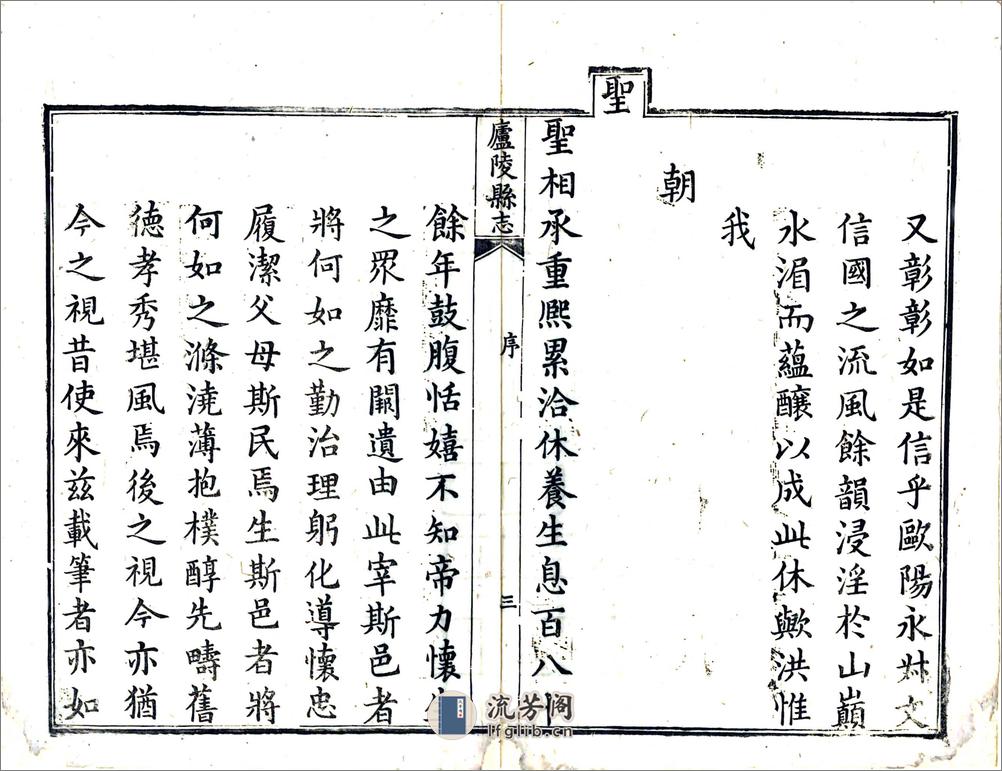 又彰彰如是信乎歐陽永叔文
信國之流風餘韻浸淫於山巔
水湄而蘊釀以成此休歟洪惟
我
朝
聖
聖相承重熙累洽休養生息百八十
廬陵縣志
序
三
餘年鼓腹恬嬉不知帝力懷生
之眾靡有闕遺由此宰斯邑者
將何如之勤治理躬化導懷忠
履潔父母斯民焉生斯邑者將
何如之滌澆薄抱樸醇先疇舊
德孝秀堪風焉後之視今亦猶
今之視昔使來茲載筆者亦如
流芳阁
lfglib.cn